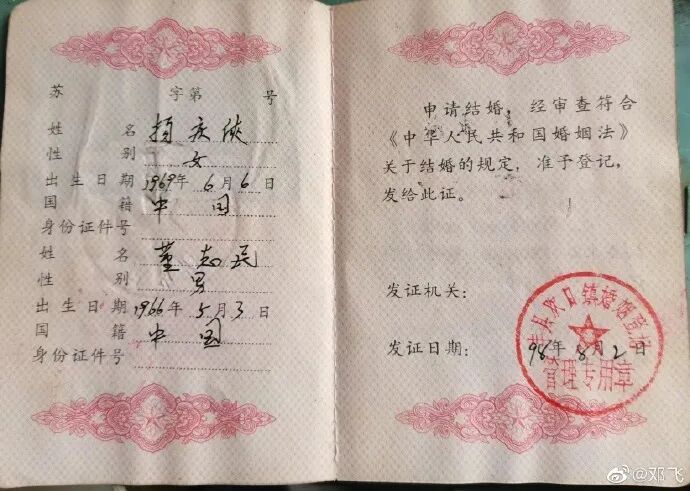 苏 字第 号
姓名 杨庆侠
性别 女
出生日期 1969年6月6日
国籍 中国
身份证件号
姓名 董志民
性别 男
出生日期 1966年5月3日
国籍 中国
身份证件号
申请结婚，经审查符合
《中华人民共和国婚姻法》
关于结婚的规定，准予登记，
发给此证。
发证机关：
发证日期： 98年8月2日
县欢口镇婚姻登记
管理专用章
@邓飞